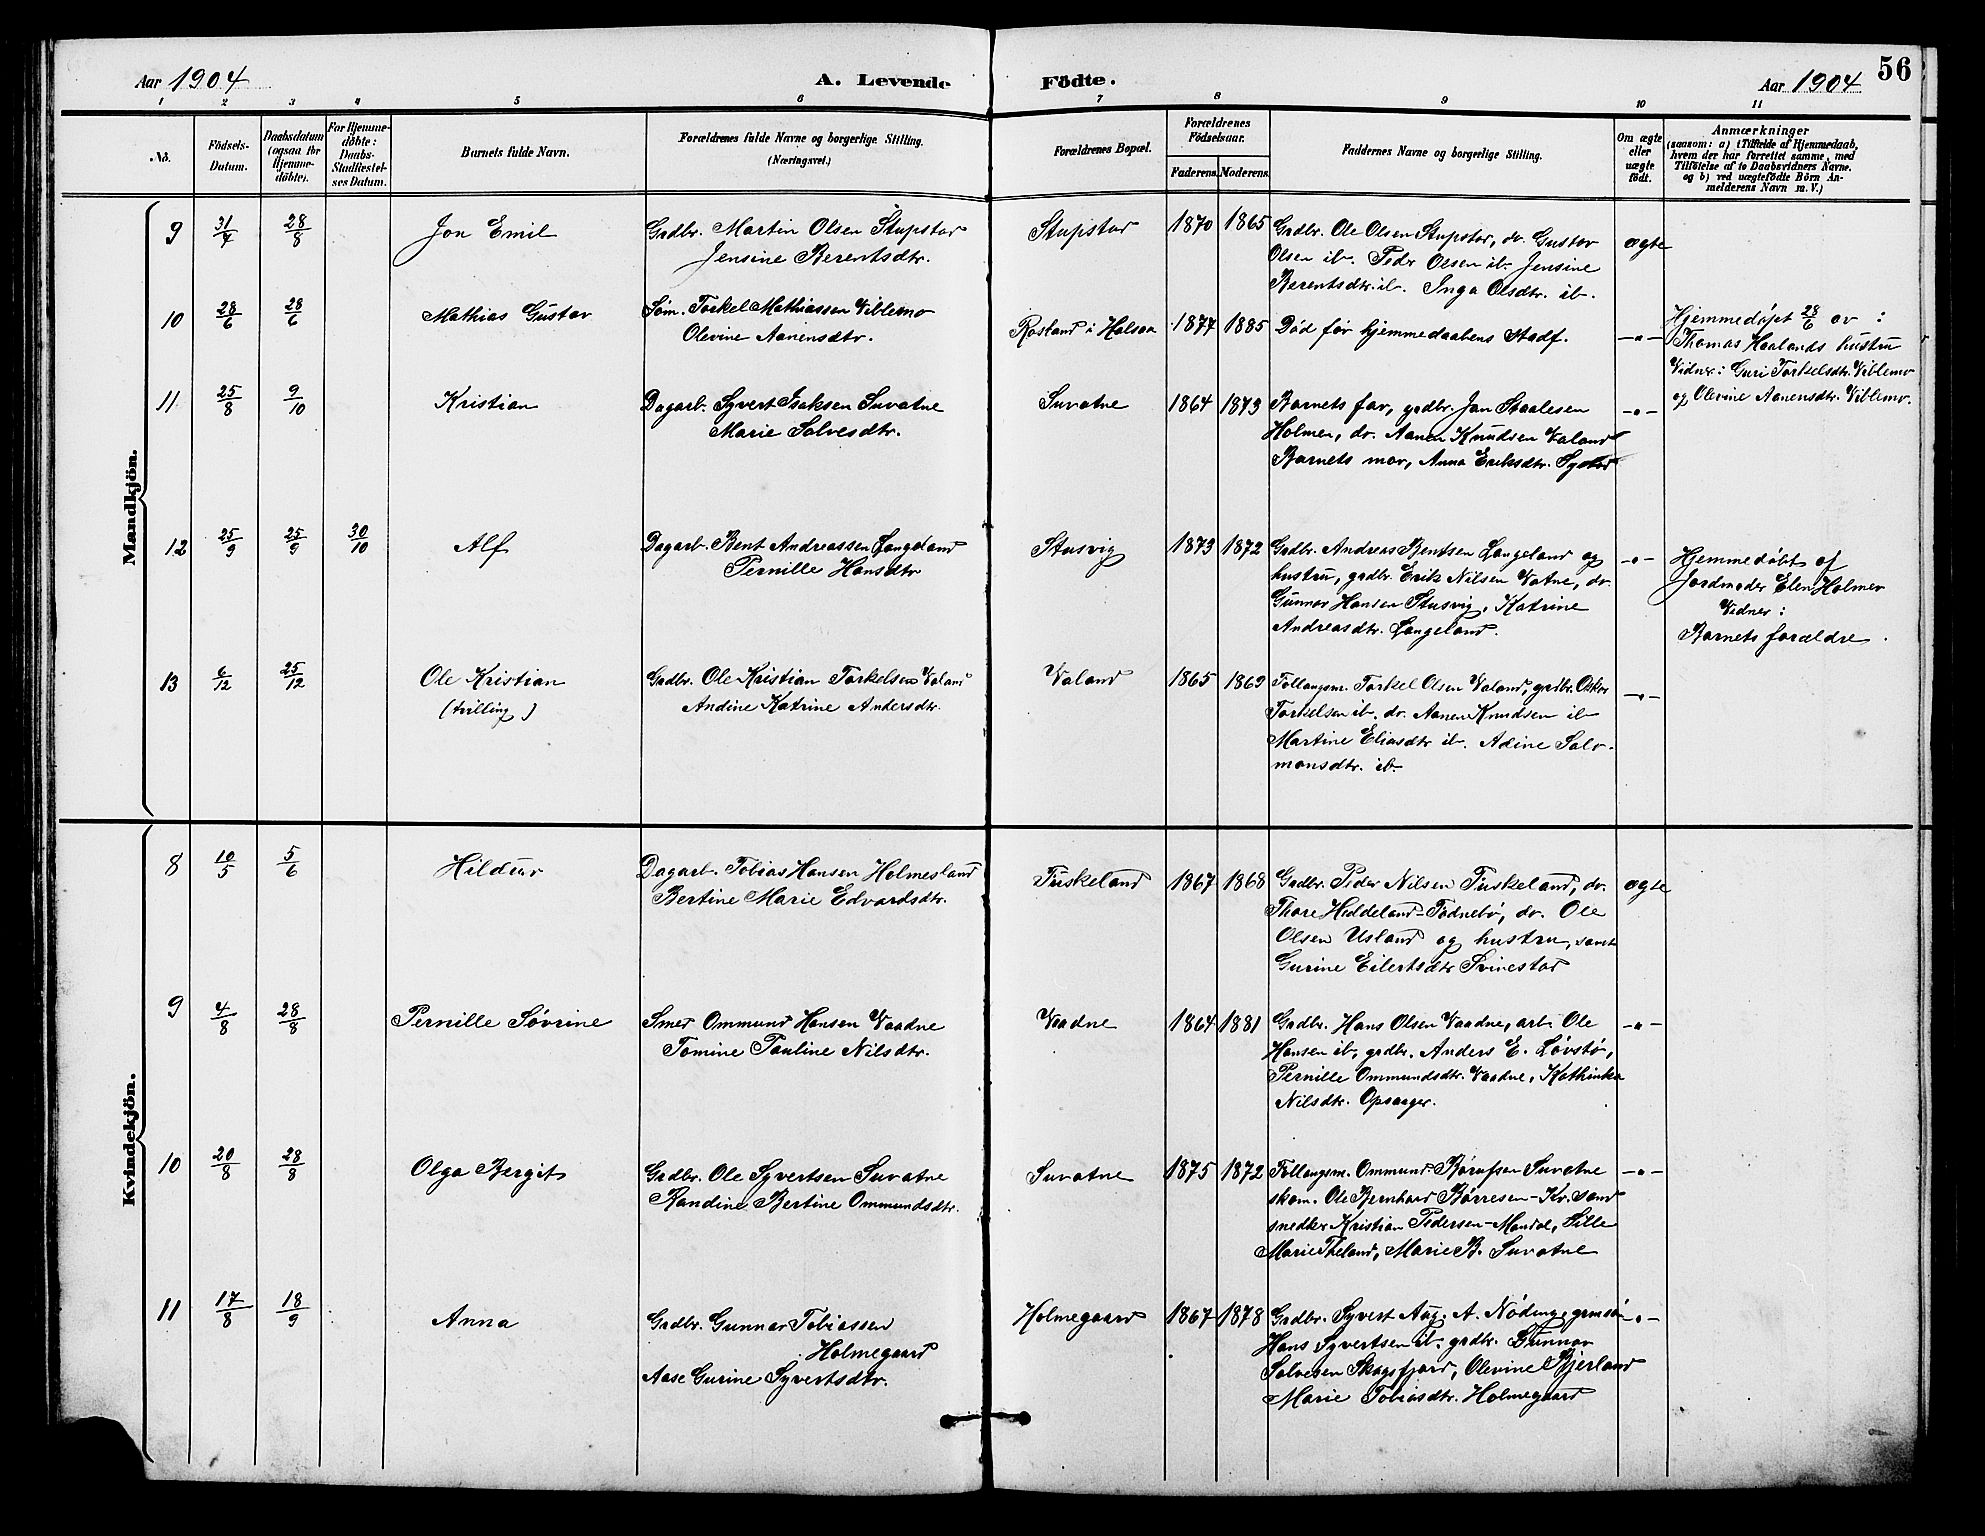 Aar 1904 A. Levende Födte. Aar 1904 56
1 2 3 4 5 6 7 8 9 10 11
No. Födsels-Datum. Daabsdatum (ogsaa for Hjemme-döbte). For Hjemme-döbte: Daabs-Stadfæstel-ses Datum. Barnets fulde Navn. Forældrenes fulde Navne og borgerlige Stilling. (Næringsvei.) Forældrenes Bopæl. Forældrenes Födselsaar. Faderens. Moderens. Faddernes Navne og borgerlige Stilling. Om ægte eller uægte födt. Anmærkninger (saasom: a) i Tilfælde af Hjemmedaab, hvem der har forrettet samme, med Tilföielse af to Daabsvidners Navne. og b) ved uægtefödte Börn An-melderens Navn m. V.)
Mandkjön.
9 31/7 28/8 Jon Emil Grdbr. Martin Olsen Stupstad Stupstad 1870 1865 Grdbr. Ole Olsen Stupstad, do. Gustav ægte
Jensine Berentsdtr. Olsen ib. Peder Olsen ib. Jensine
Berentsdtr. ib. Inga Olsdtr. ib.
10 28/6 28/6 Mathias Gustav Søm. Torkel Mathiassen Viblemo Røsland i Halsaa 1877 1885 Død før hjemmedaabens Stadf. -"- Hjemmedøpt 28/6 av:
Olevine Aanensdtr. Thomas Haalands hustru
Vidner: Guri Torkelsdtr. Viblemo
og Olevine Aanensdtr. Viblemo.
11 25/8 9/10 Kristian Dagarb. Syvert Isaksen Suvatne Suvatne 1864 1873 Barnets far, grdbr. Jan Staalesen -"-
Marie Salvesdtr. Holmen, do. Aanen Knudsen Valand
Barnets mor, Anna Eriksdtr.
12 25/9 25/9 30/10 Alf Dagarb. Bent Andreassen Langeland Stusvig 1873 1872 Grdbr. Andreas Bentsen Langeland og -"- Hjemmedøbt af
Pernille Hansdtr hustru, grdbr. Erik Nilsen Vatne, do. Jordmoder Elen Holmen
Gunnar Hansen Stusvig, Katrine Vidner:
Andreasdtr. Langeland. Barnets forældre.
13 6/12 25/12 Ole Kristian Grdbr. Ole Kristian Torkelsen Valand Valand 1865 1869 Follaugsm. Torkel Olsen Valand, grdbr. Oskar -"-
(tvilling) Andine Katrine Andersdtr. Torkelsen ib. do. Aanen Knudsen ib
Martine Eliasdtr ib. Adine Salo-
monsdtr. ib.
Kvindekjön.
8 10/5 5/6 Hildur Dagarb. Tobias Hansen Holmesland Tuskeland 1867 1868 Grdbr. Peder Nilsen Tuskeland, do. ægte
Bertine Marie Edvardsdtr. Thore Heddeland-Tødnebø, do. Ole
Olsen Usland og hustru, samt
Gurine Eilertsdtr Svinestad
9 4/8 28/8 Pernille Søvrine Smed Ommund Hansen Vaadne Vaadne 1864 1881 Grdbr. Hans Olsen Vaadne, arb. Ole -"-
Tomine Pauline Nilsdtr. Hansen ib, grdbr. Anders E. Løvstø,
Pernille Ommundsdtr. Vaadne, Kathinka
Nilsdtr. Opsanger.
10 20/8 28/8 Olga Bergit Grdbr. Ole Syvertsen Suvatne Suvatne 1875 1872 Follaugsm. Ommund Børufsen Suvatne -"-
Randine Bertine Ommundsdtr. skom. Ole Bernhard Børresen-Kr.sand
snedker Kristian Pedersen-Mandal, Sille
Marie Theland, Marie B. Suvatne
11 17/8 18/9 Anna Grdbr. Gunnar Tobiassen Holmegaard 1867 1878 Grdbr. Syvert Aug. A. Nøding, grmsøn -"-
Holmegaard Hans Syvertsen ib. grdbr. Gunnar
Aase Gurine Syvertsdtr. Salvesen Skogsfjord, Olevine Bjerland
Marie Tobiasdtr. Holmegaard